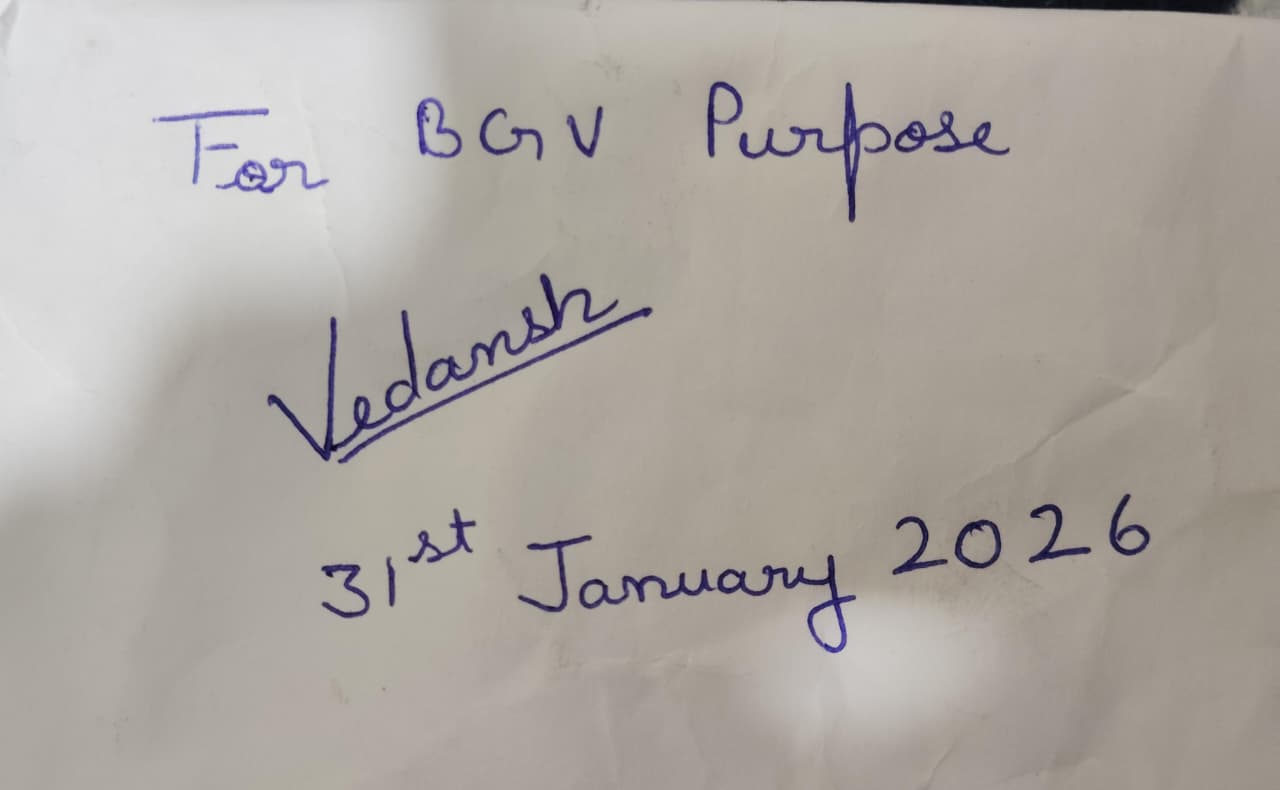 For BGV Purpose
Vedansh
31st January 2026